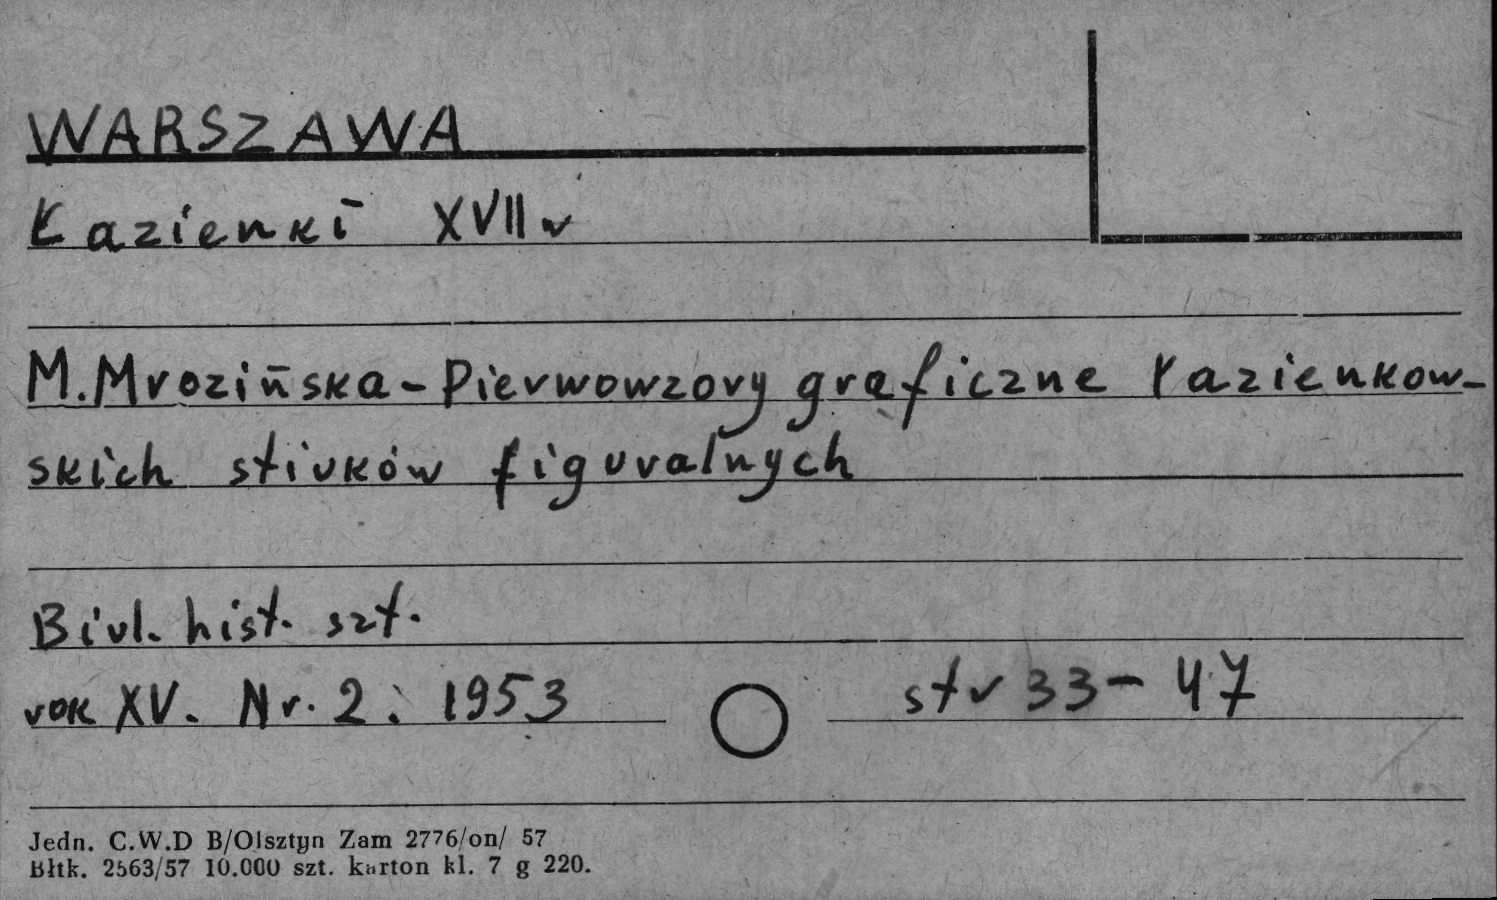 WARSZAWA
Łazienki XVII w
M. Mrozińska - Pierwowzory graficzne łazienkow-
skich stiuków figuralnych
Biul. hist. szt.
rok XV. Nr. 2. 1953 str 33 - 47
Jedn. C.W.D B/Olsztyn Zam 2776/on/ 57
Błtk. 2563/57 10.000 szt. karton kl. 7 g 220.